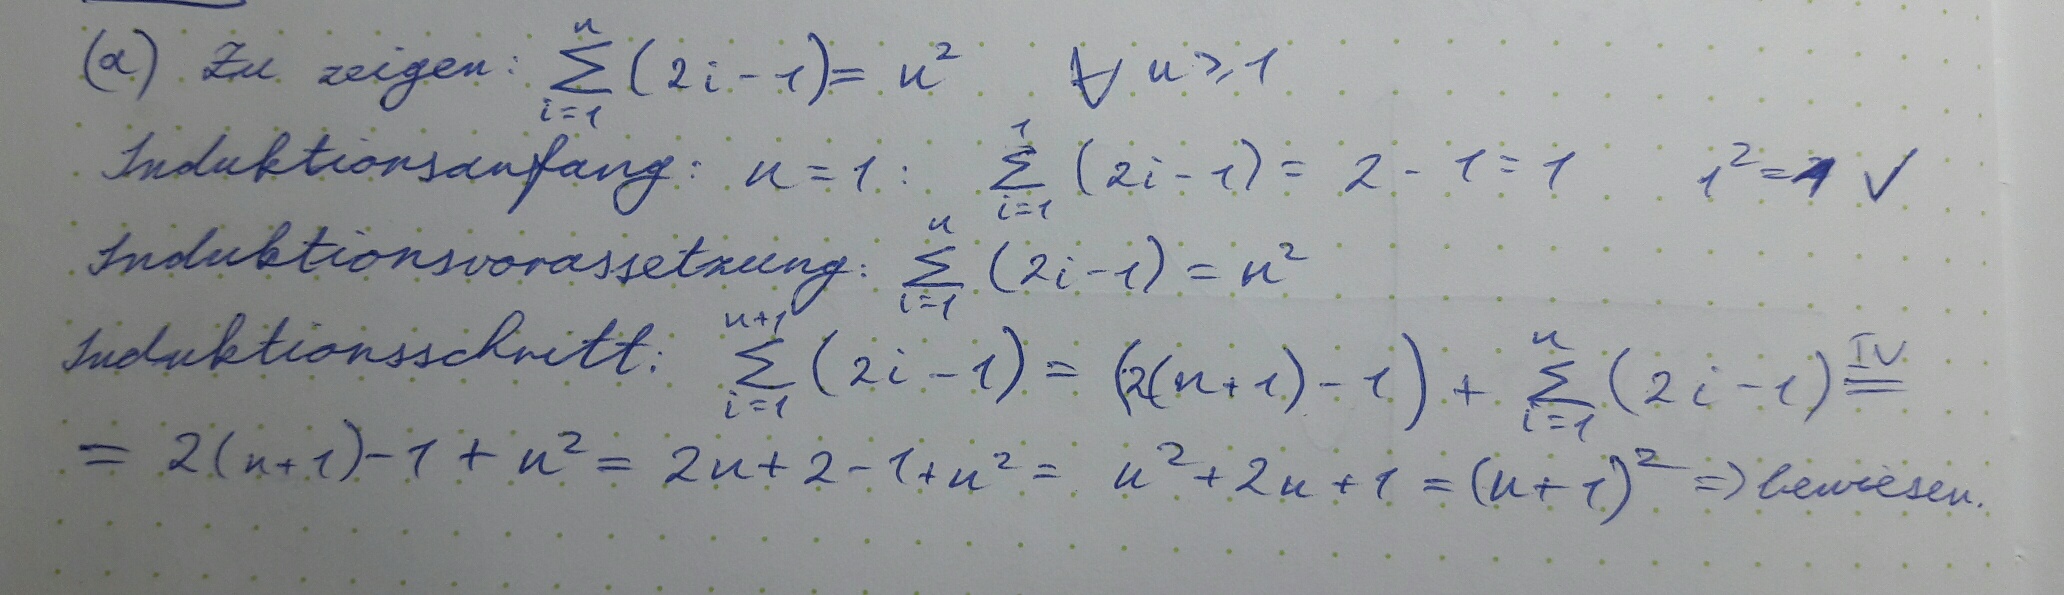 (a) Zu zeigen: ∑_{i=1}^{n} (2i-1) = n² ∀ n ≥ 1
Induktionsanfang: n=1: ∑_{i=1}^{1} (2i-1) = 2-1=1 1²=1 ✓
Induktionsvorassetzung: ∑_{i=1}^{n} (2i-1) = n²
Induktionsschritt: ∑_{i=1}^{n+1} (2i-1) = (2(n+1)-1) + ∑_{i=1}^{n} (2i-1) =^{IV}
= 2(n+1)-1+n² = 2n+2-1+n² = n²+2n+1 = (n+1)² ⇒ bewiesen.